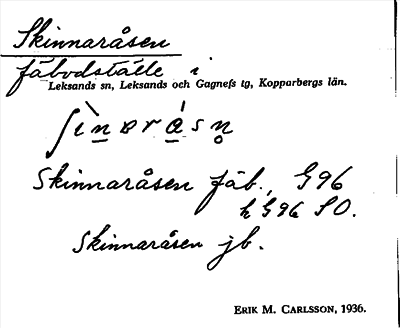 Skinnaråsen
fäbodställe i
Leksands sn, Leksands och Gagnefs tg, Kopparbergs län.
Skinnaråsen fäb., G96
h G96 SO.
Skinnaråsen jb.
ERIK M. CARLSSON, 1936.